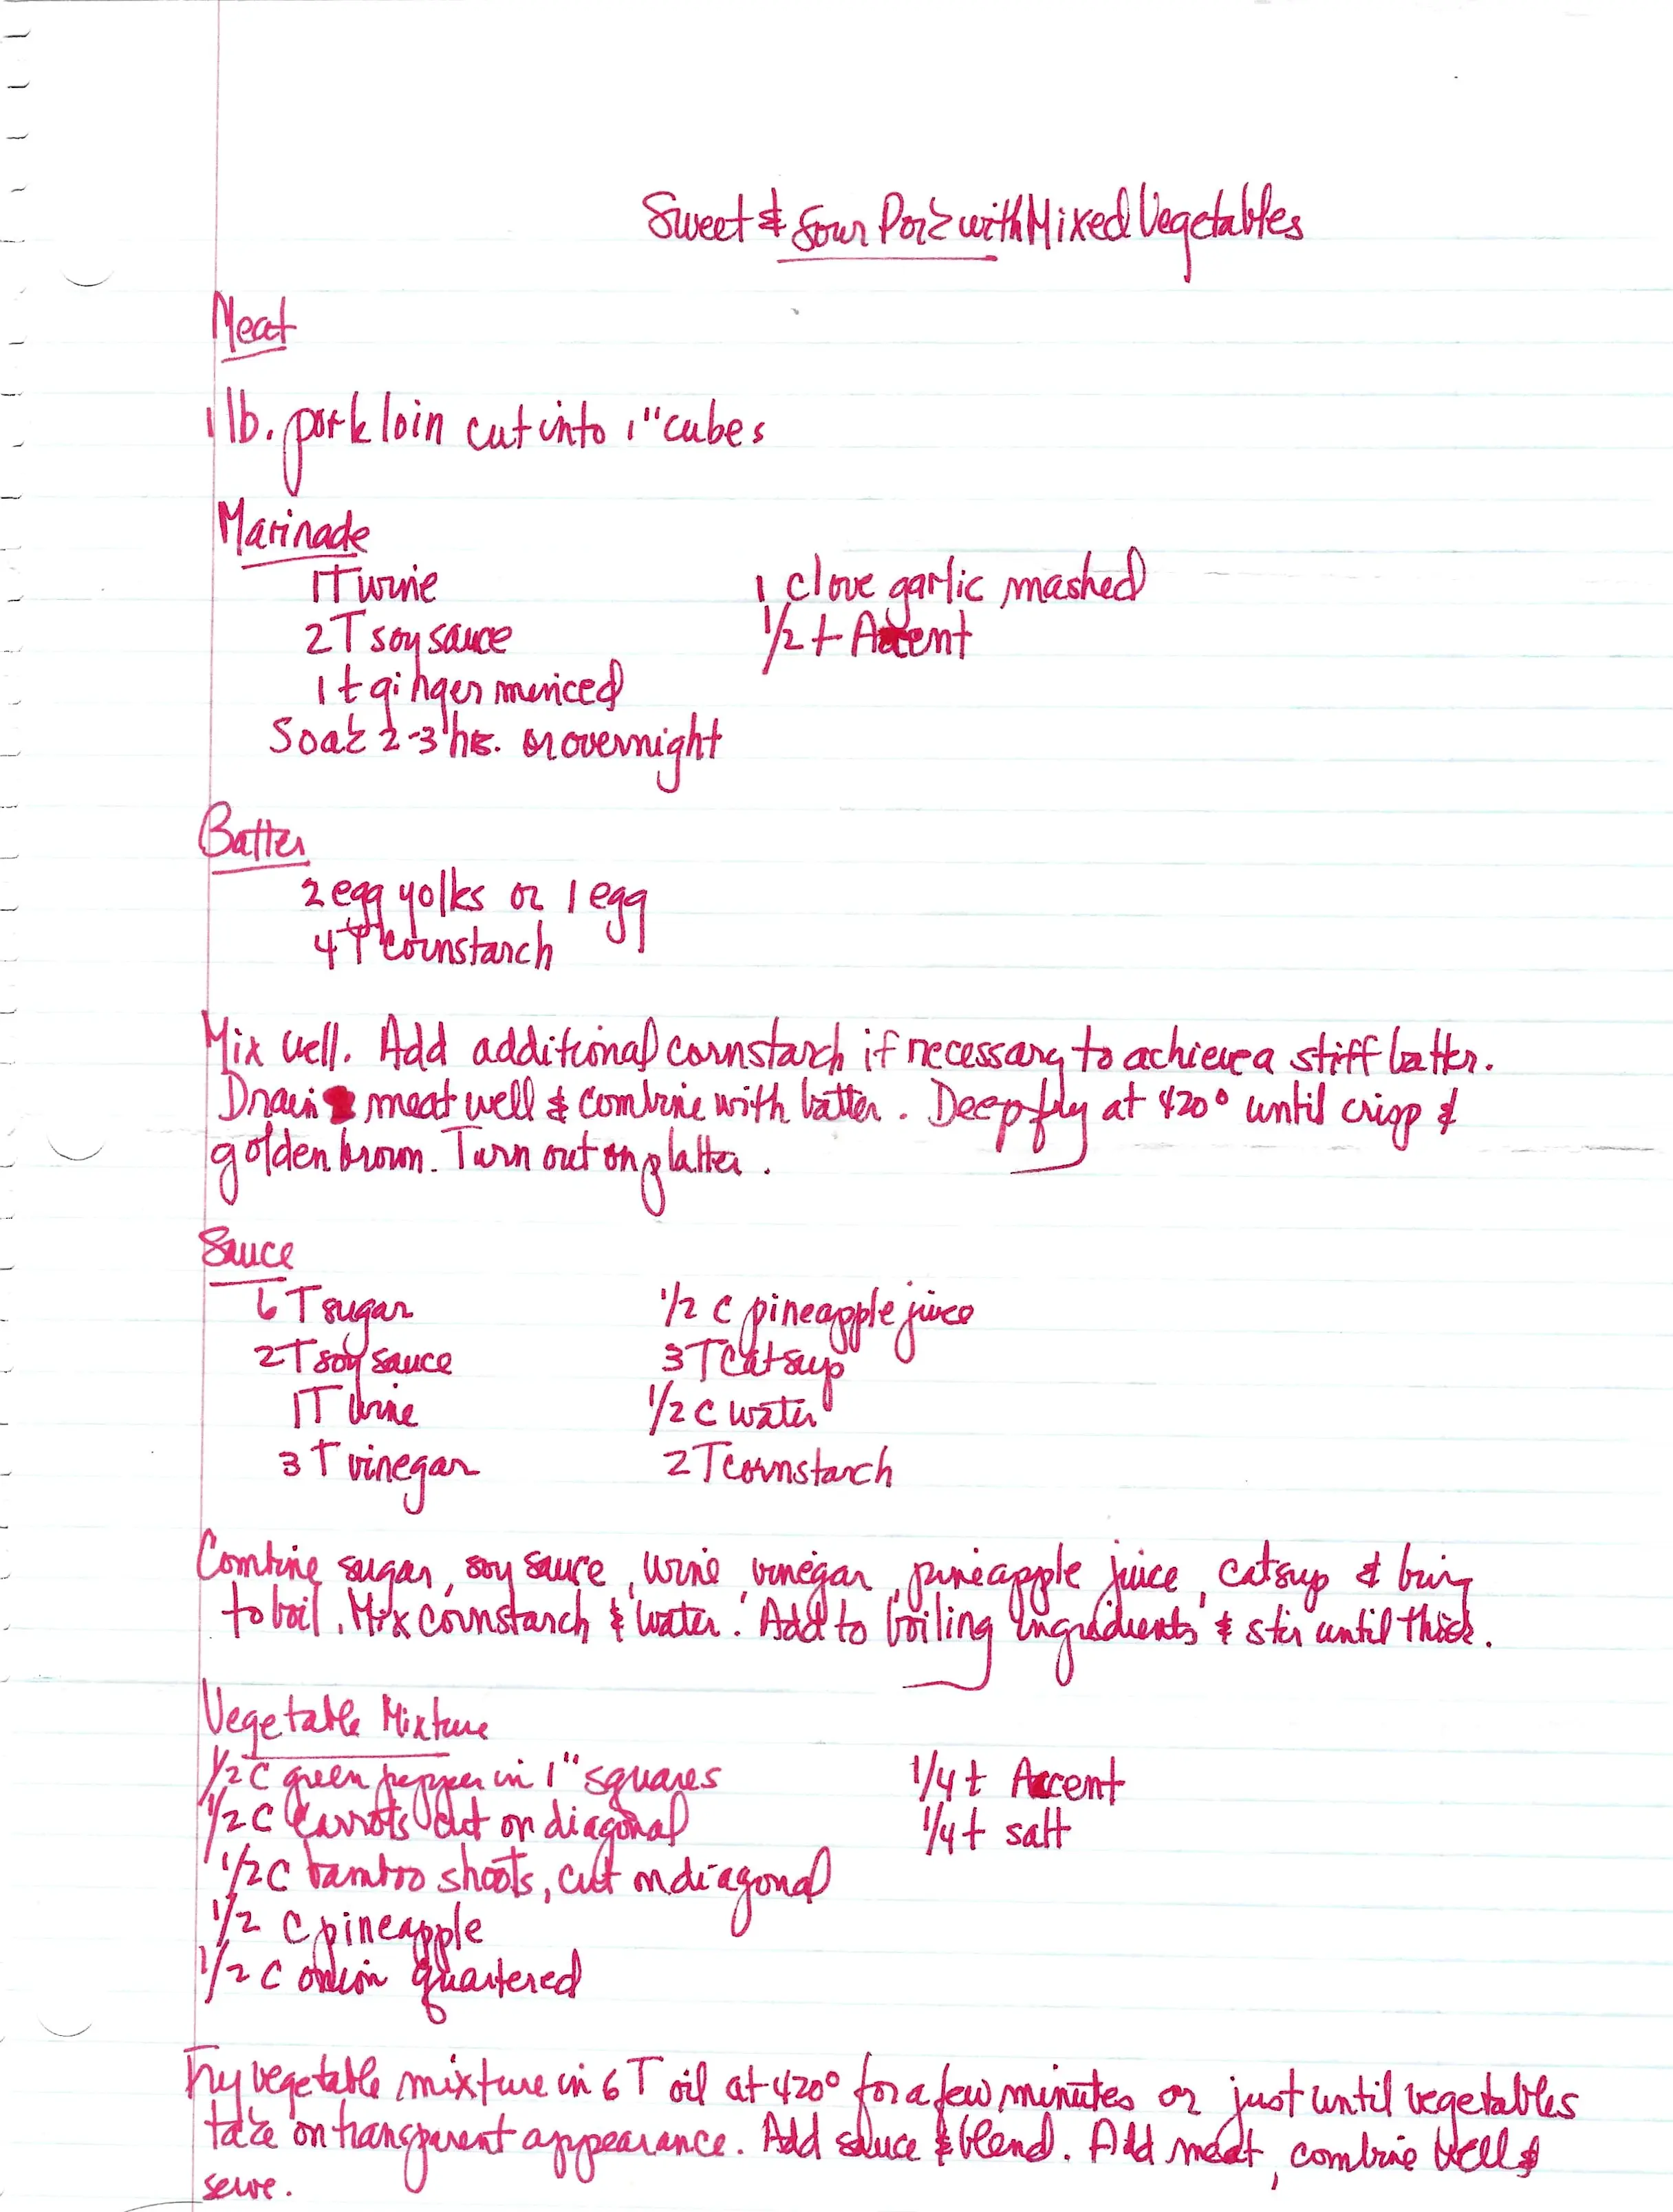 Sweet & Sour Pork with Mixed Vegetables
Meat
1 lb. pork loin cut into 1" cubes
Marinade
1 T wine 1 clove garlic mashed
2 T soy sauce 1/2 t Accent
1 t ginger minced
Soak 2-3 hrs. or overnight
Batter
2 egg yolks or 1 egg
4 T cornstarch
Mix well. Add additional cornstarch if necessary to achieve a stiff batter.
Drain meat well & combine with batter. Deep fry at 420° until crisp &
golden brown. Turn out on platter.
Sauce
6 T sugar 1/2 c pineapple juice
2 T soy sauce 3 T Catsup
1 T wine 1/2 c water
3 T vinegar 2 T cornstarch
Combine sugar, soy sauce, wine vinegar, pineapple juice, catsup & bring
to boil. Mix cornstarch & water. Add to boiling ingredients & stir until thick.
Vegetable Mixture
1/2 C green pepper in 1" squares 1/4 t Accent
1/2 C Carrots cut on diagonal 1/4 t salt
1/2 C bamboo shoots, cut on diagonal
1/2 C pineapple
1/2 C onion quartered
Fry vegetable mixture in 6 T oil at 420° for a few minutes or just until vegetables
take on transparent appearance. Add sauce & blend. Add meat, combine well &
serve.